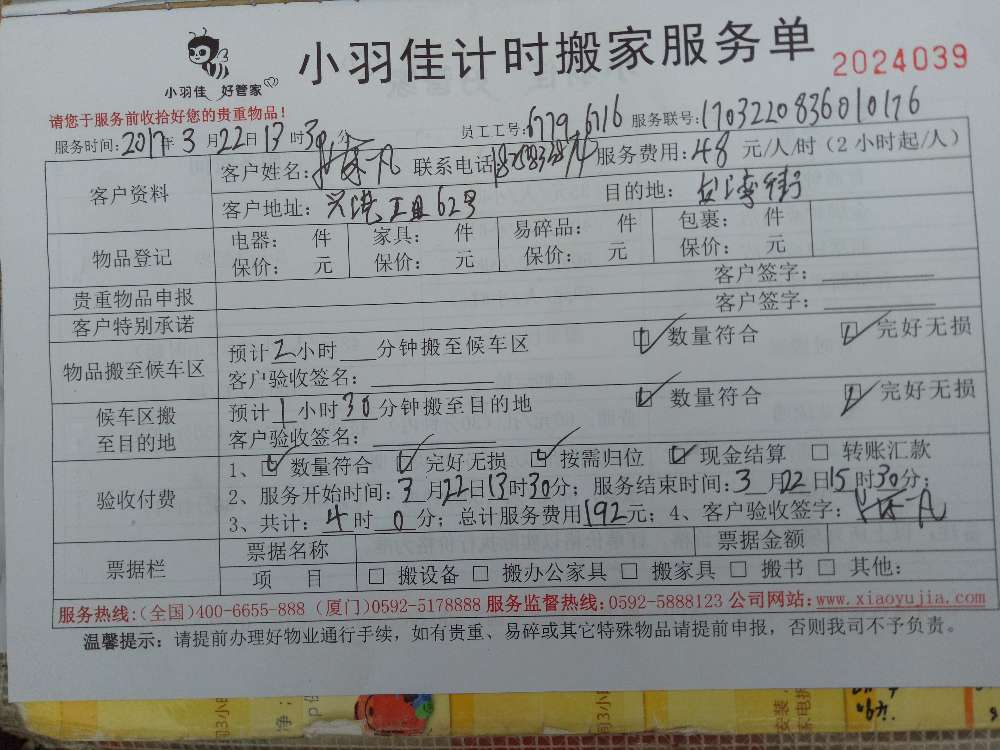 小羽佳 好管家
小羽佳计时搬家服务单
2024039
请您于服务前收拾好您的贵重物品!
服务时间:2017年3月22日13时30分 员工工号:6779 6716 服务联号:1703220836010176
客户资料
客户姓名: 联系电话 服务费用:48元/人/时(2小时起/人)
客户地址: 62号 目的地: 街
物品登记
电器: 件 家具: 件 易碎品: 件 包裹: 件
保价: 元 保价: 元 保价: 元 保价: 元
贵重物品申报 客户签字:
客户特别承诺 客户签字:
物品搬至候车区
预计2小时 分钟搬至候车区 数量符合 完好无损
客户验收签名:
候车区搬至目的地
预计1小时30分钟搬至目的地 数量符合 完好无损
客户验收签名:
验收付费
1、 数量符合 完好无损 按需归位 现金结算 转账汇款
2、服务开始时间:3月22日13时30分; 服务结束时间:3月22日15时30分;
3、共计:4时0分; 总计服务费用192元; 4、客户验收签字:
票据栏
票据名称 票据金额
项 目 搬设备 搬办公家具 搬家具 搬书 其他:
服务热线:(全国)400-6655-888 (厦门)0592-5178888 服务监督热线:0592-5888123 公司网站:www.xiaoyujia.com
温馨提示: 请提前办理好物业通行手续,如有贵重、易碎或其它特殊物品请提前申报,否则我司不予负责。